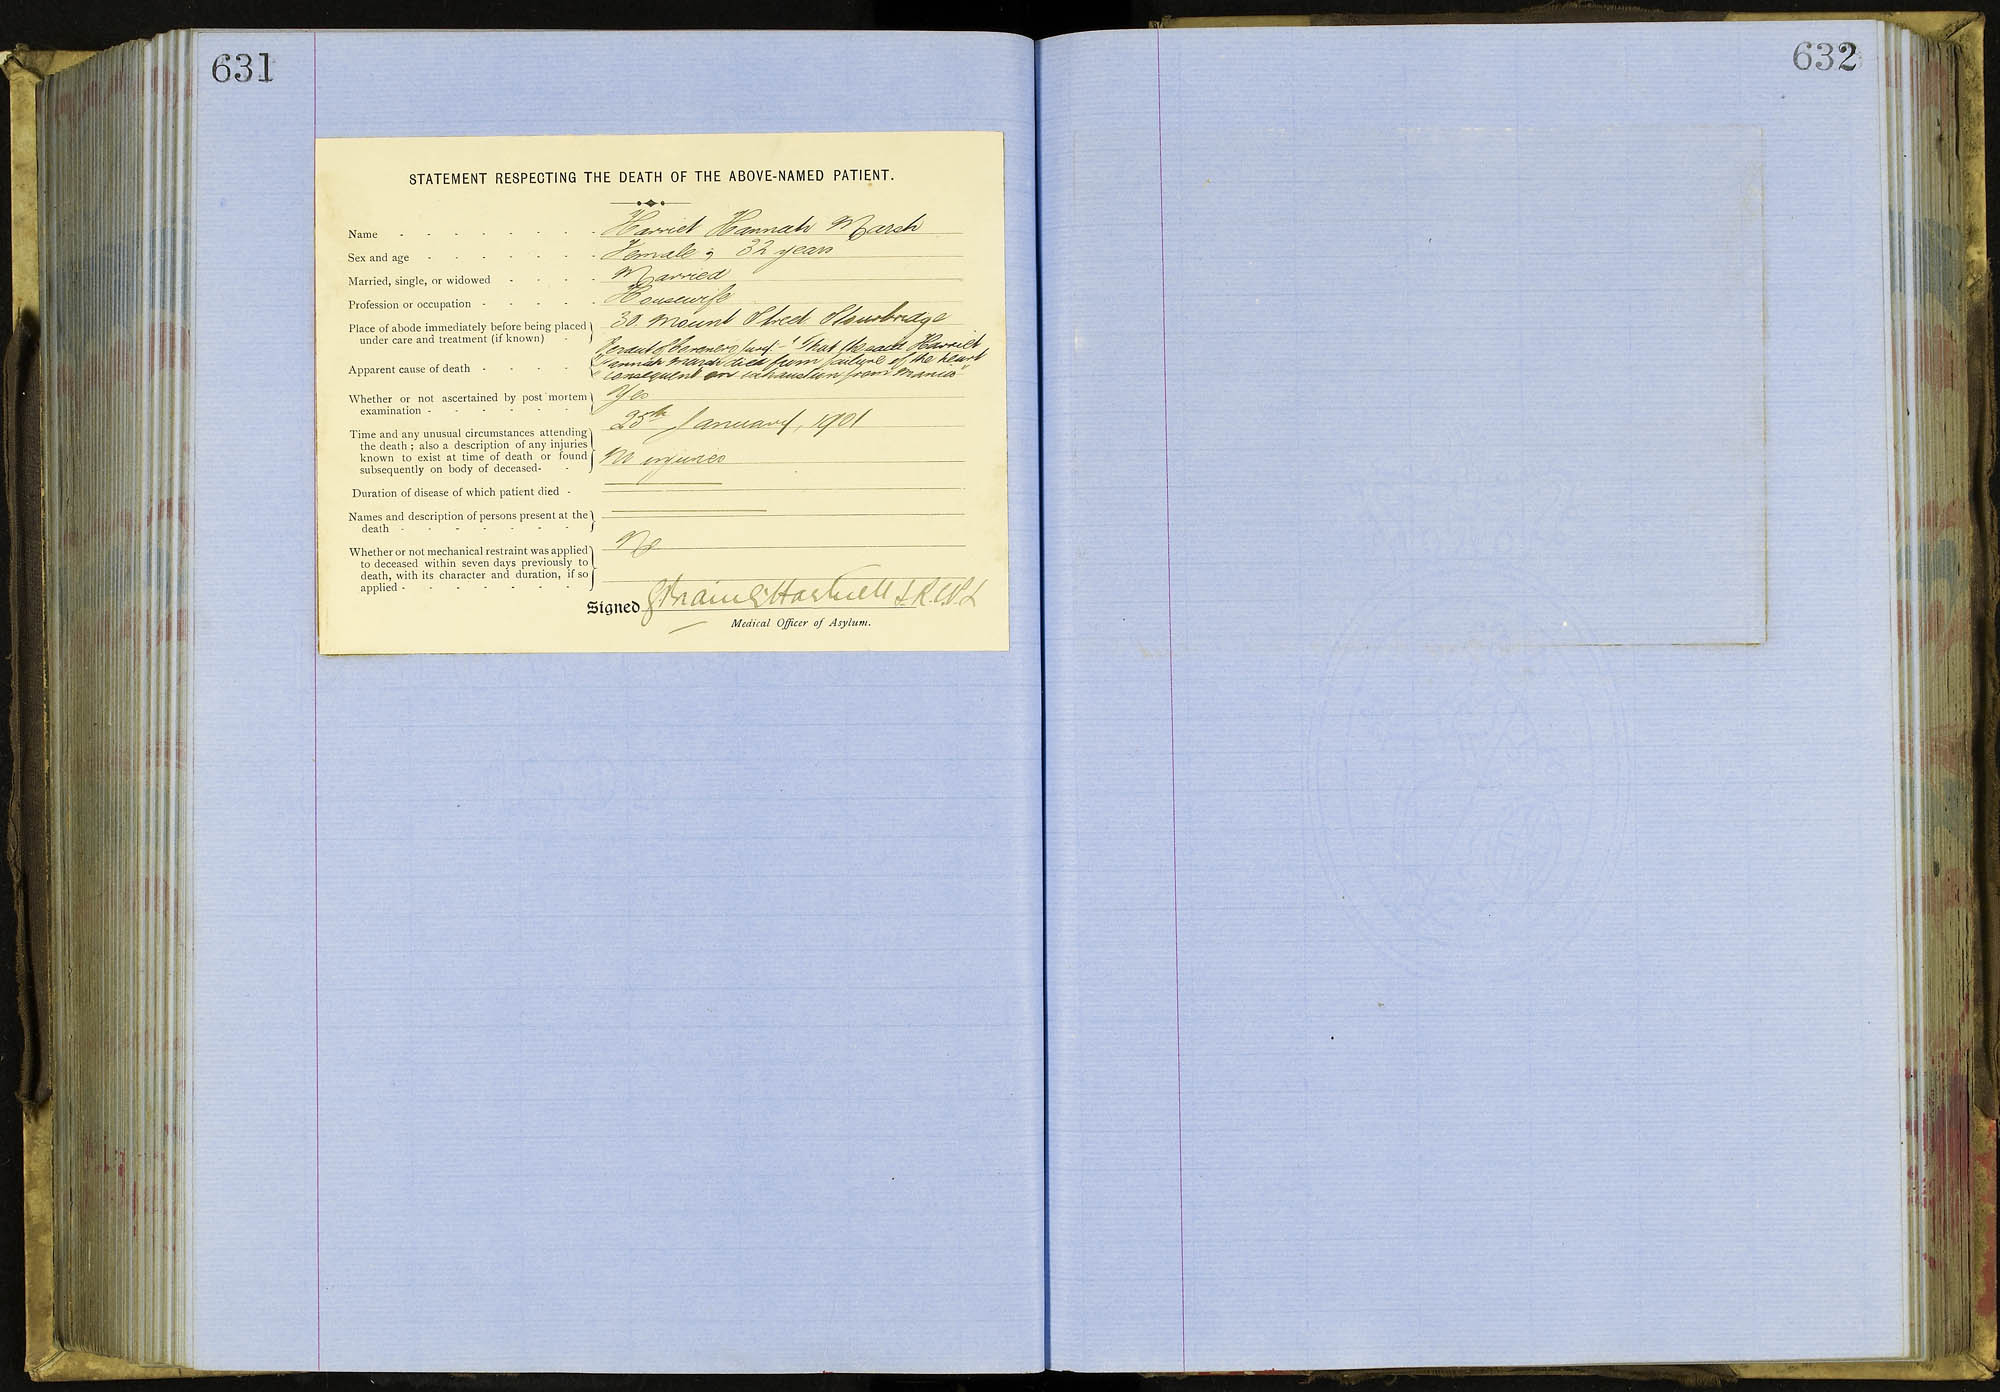 631
632
STATEMENT RESPECTING THE DEATH OF THE ABOVE-NAMED PATIENT.
Name - - - - - - - - Harriet Hannah Marsh
Sex and age - - - - - - - Female ; 32 years
Married, single, or widowed - - - - Married
Profession or occupation - - - - - Housewife
Place of abode immediately before being placed
under care and treatment (if known) - 30 Mount Street Stourbridge
Apparent cause of death - - - - Verdict of Coroner's Jury - "That the said Harriet
"Hannah Marsh died from failure of the heart
"consequent on exhaustion from Mania"
Whether or not ascertained by post mortem
examination - - - - - - Yes
Time and any unusual circumstances attending 25th January, 1901
the death ; also a description of any injuries
known to exist at time of death or found No injuries
subsequently on body of deceased- -
Duration of disease of which patient died -
Names and description of persons present at the
death - - - - - - -
Whether or not mechanical restraint was applied No
to deceased within seven days previously to
death, with its character and duration, if so
applied - - - - - - -
Signed Hartnell L.R.C.P.L
Medical Officer of Asylum.